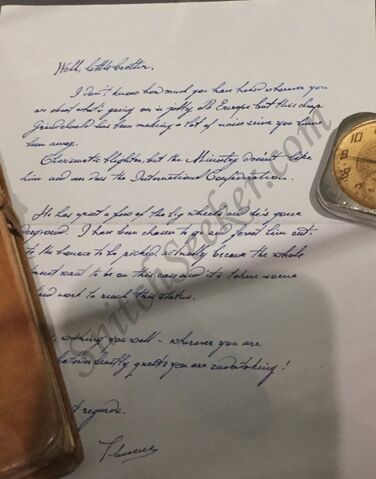 Well, little brother,
I don't know how much you have heard wherever you
are about what's going on in jolly old Europe but this chap
Grindelwald has been making a lot of noise since you have
been away.
Charismatic blighter, but the Ministry doesn't like
him and nor does the International Confederation.
He has upset a few of the big wheels and he's gone
I have been chosen to go and ferret him out.
to the honour to be picked, actually because the whole
want to be on this case and it's taken some
work to reach this status.
wishing you well - wherever you are
quests you are undertaking!
regards,
Theseus
10
SnitchSeeker.com